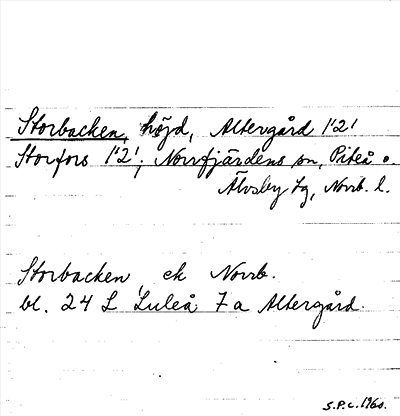 Storbacken, höjd, Altergård 1'2'
Storfors 1'2'; Norrfjärdens sn, Piteå o.
Älvsby tg, Norrb. l.
Storbacken, ek Norrb.
bl. 24 L Luleå 7a Altergård.
S.P.C. 1960.